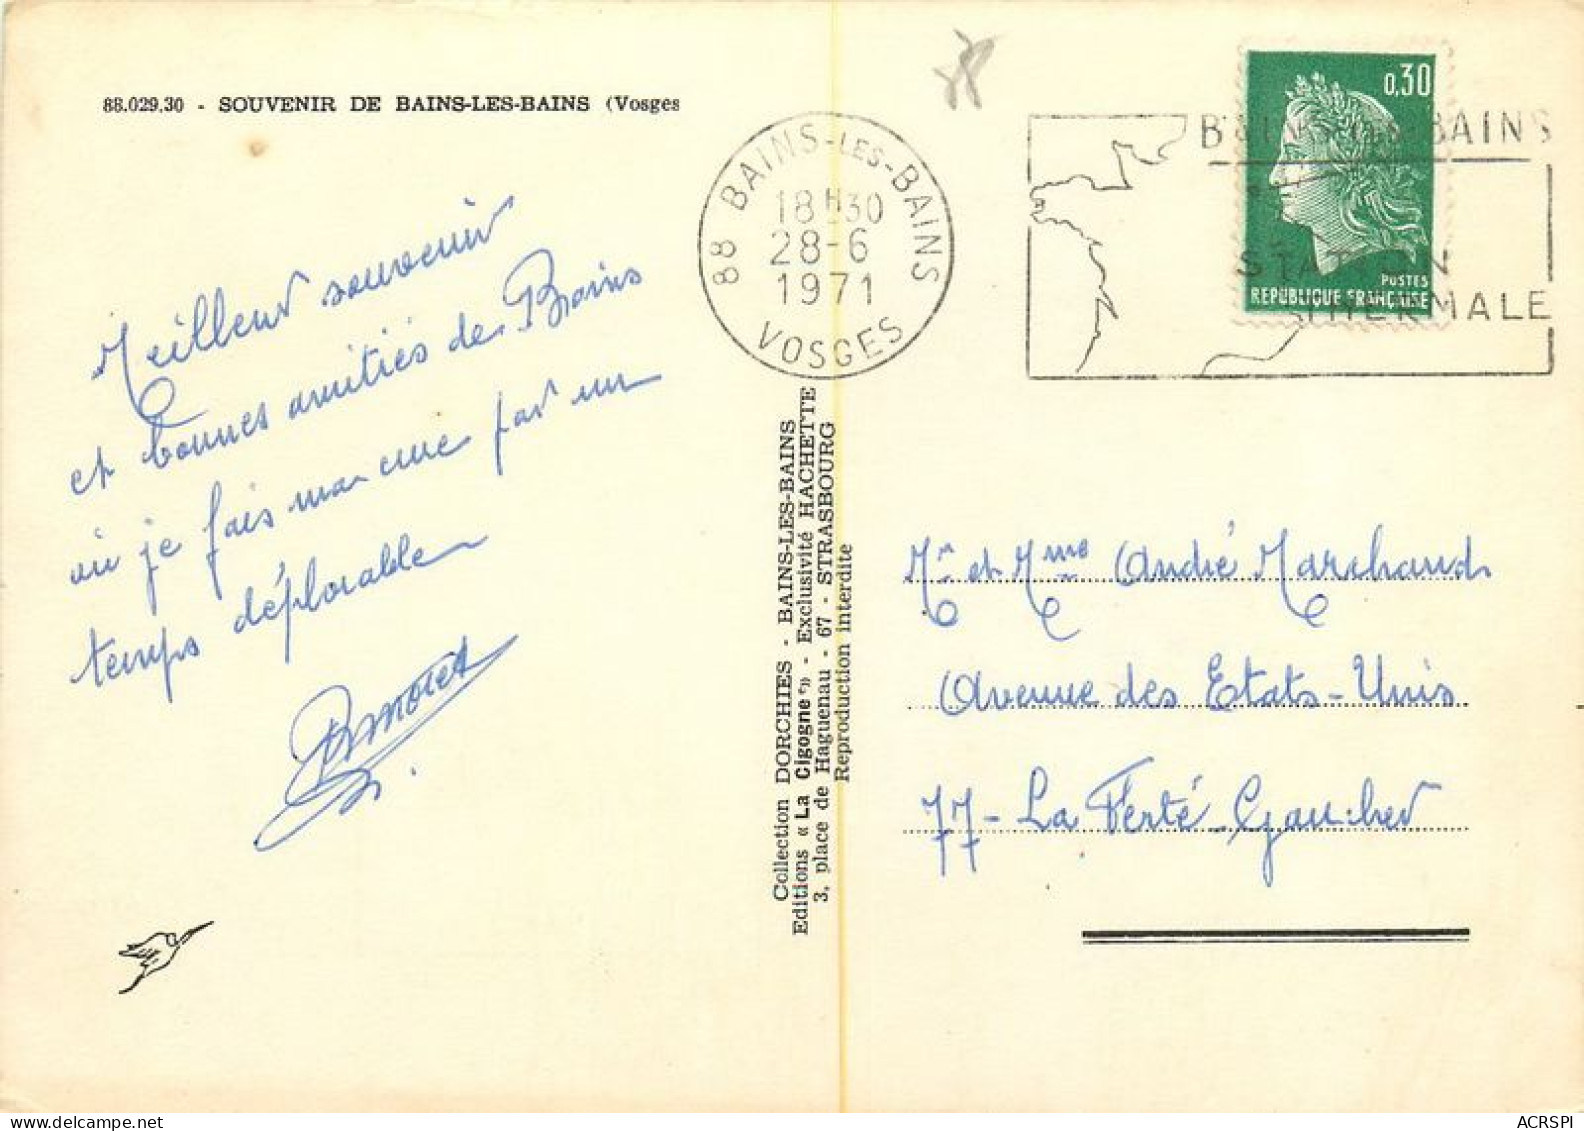 88.029.30 - SOUVENIR DE BAINS-LES-BAINS (Vosges
Meilleur souvenir
et bonnes amitiés de Bains
où je fais ma cure par un
temps déplorable
88 BAINS-LES-BAINS
18H30
28-6
1971
VOSGES
BAINS-LES-BAINS
STATION
THERMALE
0,30
POSTES
REPUBLIQUE FRANÇAISE
Collection DORCHIES - BAINS-LES-BAINS
Editions « La Cigogne » - Exclusivité HACHETTE
3, place de Haguenau - 67 - STRASBOURG
Reproduction interdite
Mr et Mme André Marchand
Avenue des Etats-Unis
77 - La Ferté-Gaucher
ACRSPI